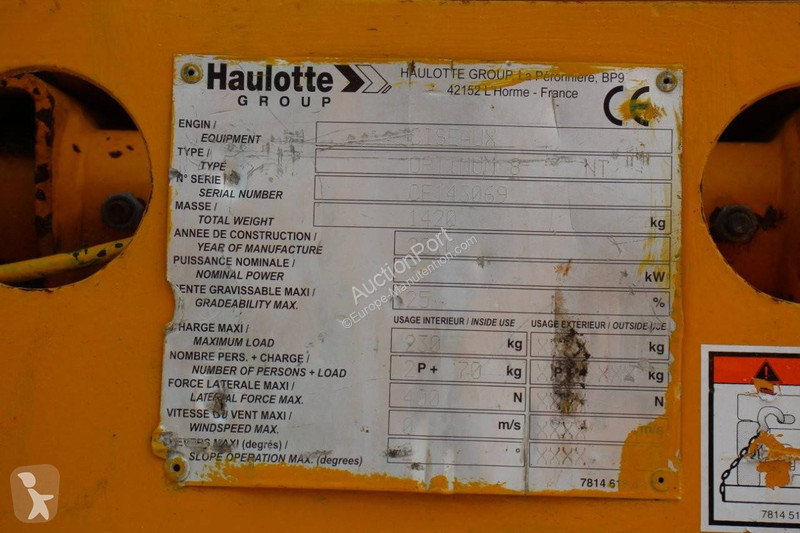 Haulotte
GROUP
HAULOTTE GROUP La Péronnière, BP9
42152 L'Horme - France
CE
ENGIN /
EQUIPMENT
TYPE /
TYPE
OPTIMUM 8 NT
N° SERIE /
SERIAL NUMBER
CE145069
MASSE /
TOTAL WEIGHT
1420 kg
ANNEE DE CONSTRUCTION /
YEAR OF MANUFACTURE
PUISSANCE NOMINALE /
NOMINAL POWER
kW
PENTE GRAVISSABLE MAXI /
GRADEABILITY MAX.
25 %
USAGE INTERIEUR / INSIDE USE USAGE EXTERIEUR / OUTSIDE USE
CHARGE MAXI /
MAXIMUM LOAD
230 kg kg
NOMBRE PERS. + CHARGE /
NUMBER OF PERSONS + LOAD
2 P + 70 kg kg
FORCE LATERALE MAXI /
LATERAL FORCE MAX.
400 N N
VITESSE DU VENT MAXI /
WINDSPEED MAX.
0 m/s XXX m/s
DEVERS MAXI (degrés) /
SLOPE OPERATION MAX. (degrees)
° XXX
7814 51
7814 51
AuctionPort
©Europe-Manutention.com